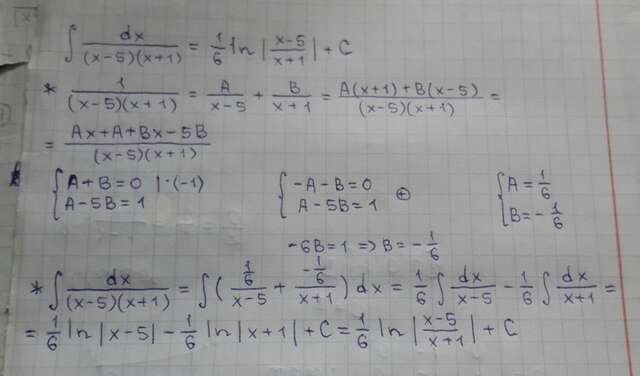 ∫ dx/((x-5)(x+1)) = 1/6 ln |(x-5)/(x+1)| + C
* 1/((x-5)(x+1)) = A/(x-5) + B/(x+1) = (A(x+1)+B(x-5))/((x-5)(x+1)) =
= (Ax+A+Bx-5B)/((x-5)(x+1))
{ A+B=0 |·(-1) { -A-B=0 { A=1/6
A-5B=1 A-5B=1 ⊕ B=-1/6
-6B=1 => B=-1/6
* ∫ dx/((x-5)(x+1)) = ∫ ( (1/6)/(x-5) + (-1/6)/(x+1) ) dx = 1/6 ∫ dx/(x-5) - 1/6 ∫ dx/(x+1) =
= 1/6 ln |x-5| - 1/6 ln |x+1| + C = 1/6 ln |(x-5)/(x+1)| + C